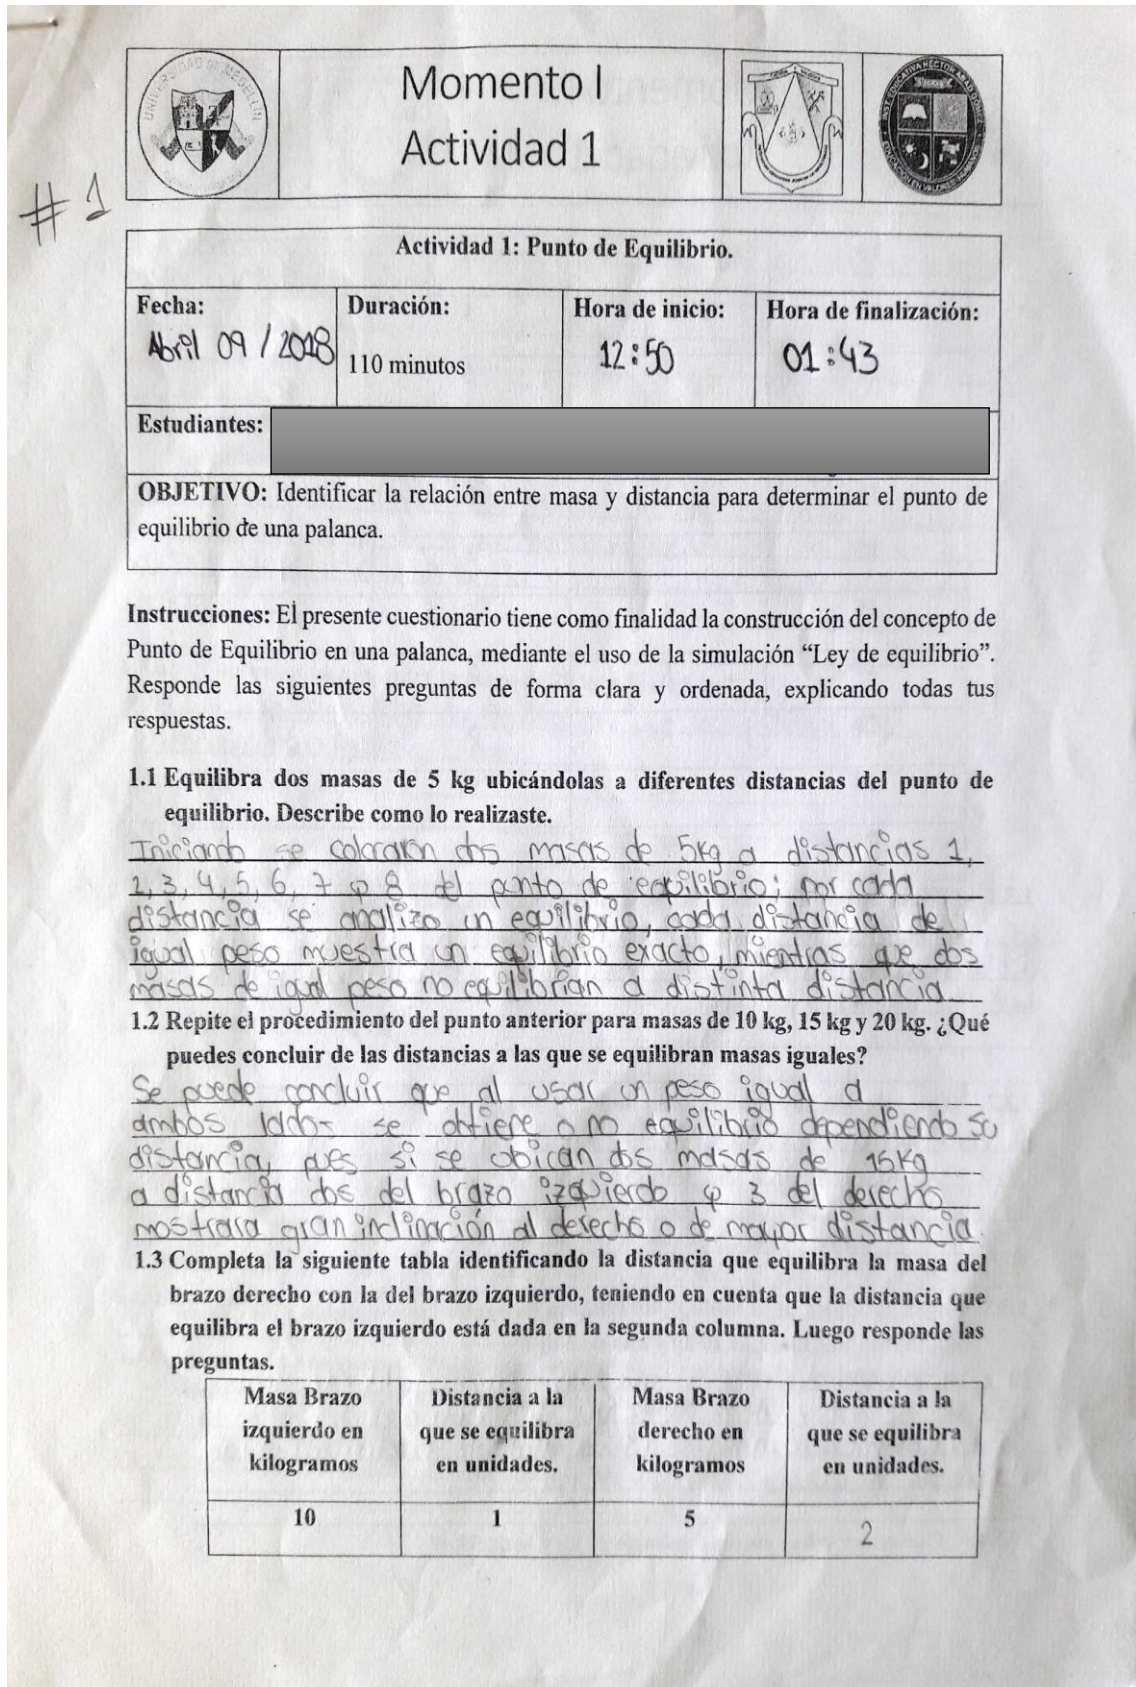 Momento I
Actividad 1
UNIVERSIDAD DE MEDELLÍN
#1
Actividad 1: Punto de Equilibrio.
Fecha:
Abril 09 / 2018
Duración:
110 minutos
Hora de inicio:
12:50
Hora de finalización:
01:43
Estudiantes:
OBJETIVO: Identificar la relación entre masa y distancia para determinar el punto de
equilibrio de una palanca.
Instrucciones: El presente cuestionario tiene como finalidad la construcción del concepto de
Punto de Equilibrio en una palanca, mediante el uso de la simulación “Ley de equilibrio”.
Responde las siguientes preguntas de forma clara y ordenada, explicando todas tus
respuestas.
1.1 Equilibra dos masas de 5 kg ubicándolas a diferentes distancias del punto de
equilibrio. Describe como lo realizaste.
Iniciando se colocaron dos masas de 5kg a distancias 1,
2, 3, 4, 5, 6, 7 y 8 del punto de equilibrio; por cada
distancia se analizo un equilibrio, cada distancia de
igual peso muestra un equilibrio exacto, mientras que dos
masas de igual peso no equilibrian a distinta distancia
1.2 Repite el procedimiento del punto anterior para masas de 10 kg, 15 kg y 20 kg. ¿Qué
puedes concluir de las distancias a las que se equilibran masas iguales?
Se puede concluir que al usar un peso igual a
ambos lados se obtiene o no equilibrio dependiendo su
distancia, pues si se ubican dos masas de 15kg
a distancia dos del brazo izquierdo y 3 del derecho
mostrara gran inclinación al derecho o de mayor distancia.
1.3 Completa la siguiente tabla identificando la distancia que equilibra la masa del
brazo derecho con la del brazo izquierdo, teniendo en cuenta que la distancia que
equilibra el brazo izquierdo está dada en la segunda columna. Luego responde las
preguntas.
Masa Brazo
izquierdo en
kilogramos
Distancia a la
que se equilibra
en unidades.
Masa Brazo
derecho en
kilogramos
Distancia a la
que se equilibra
en unidades.
10
1
5
2